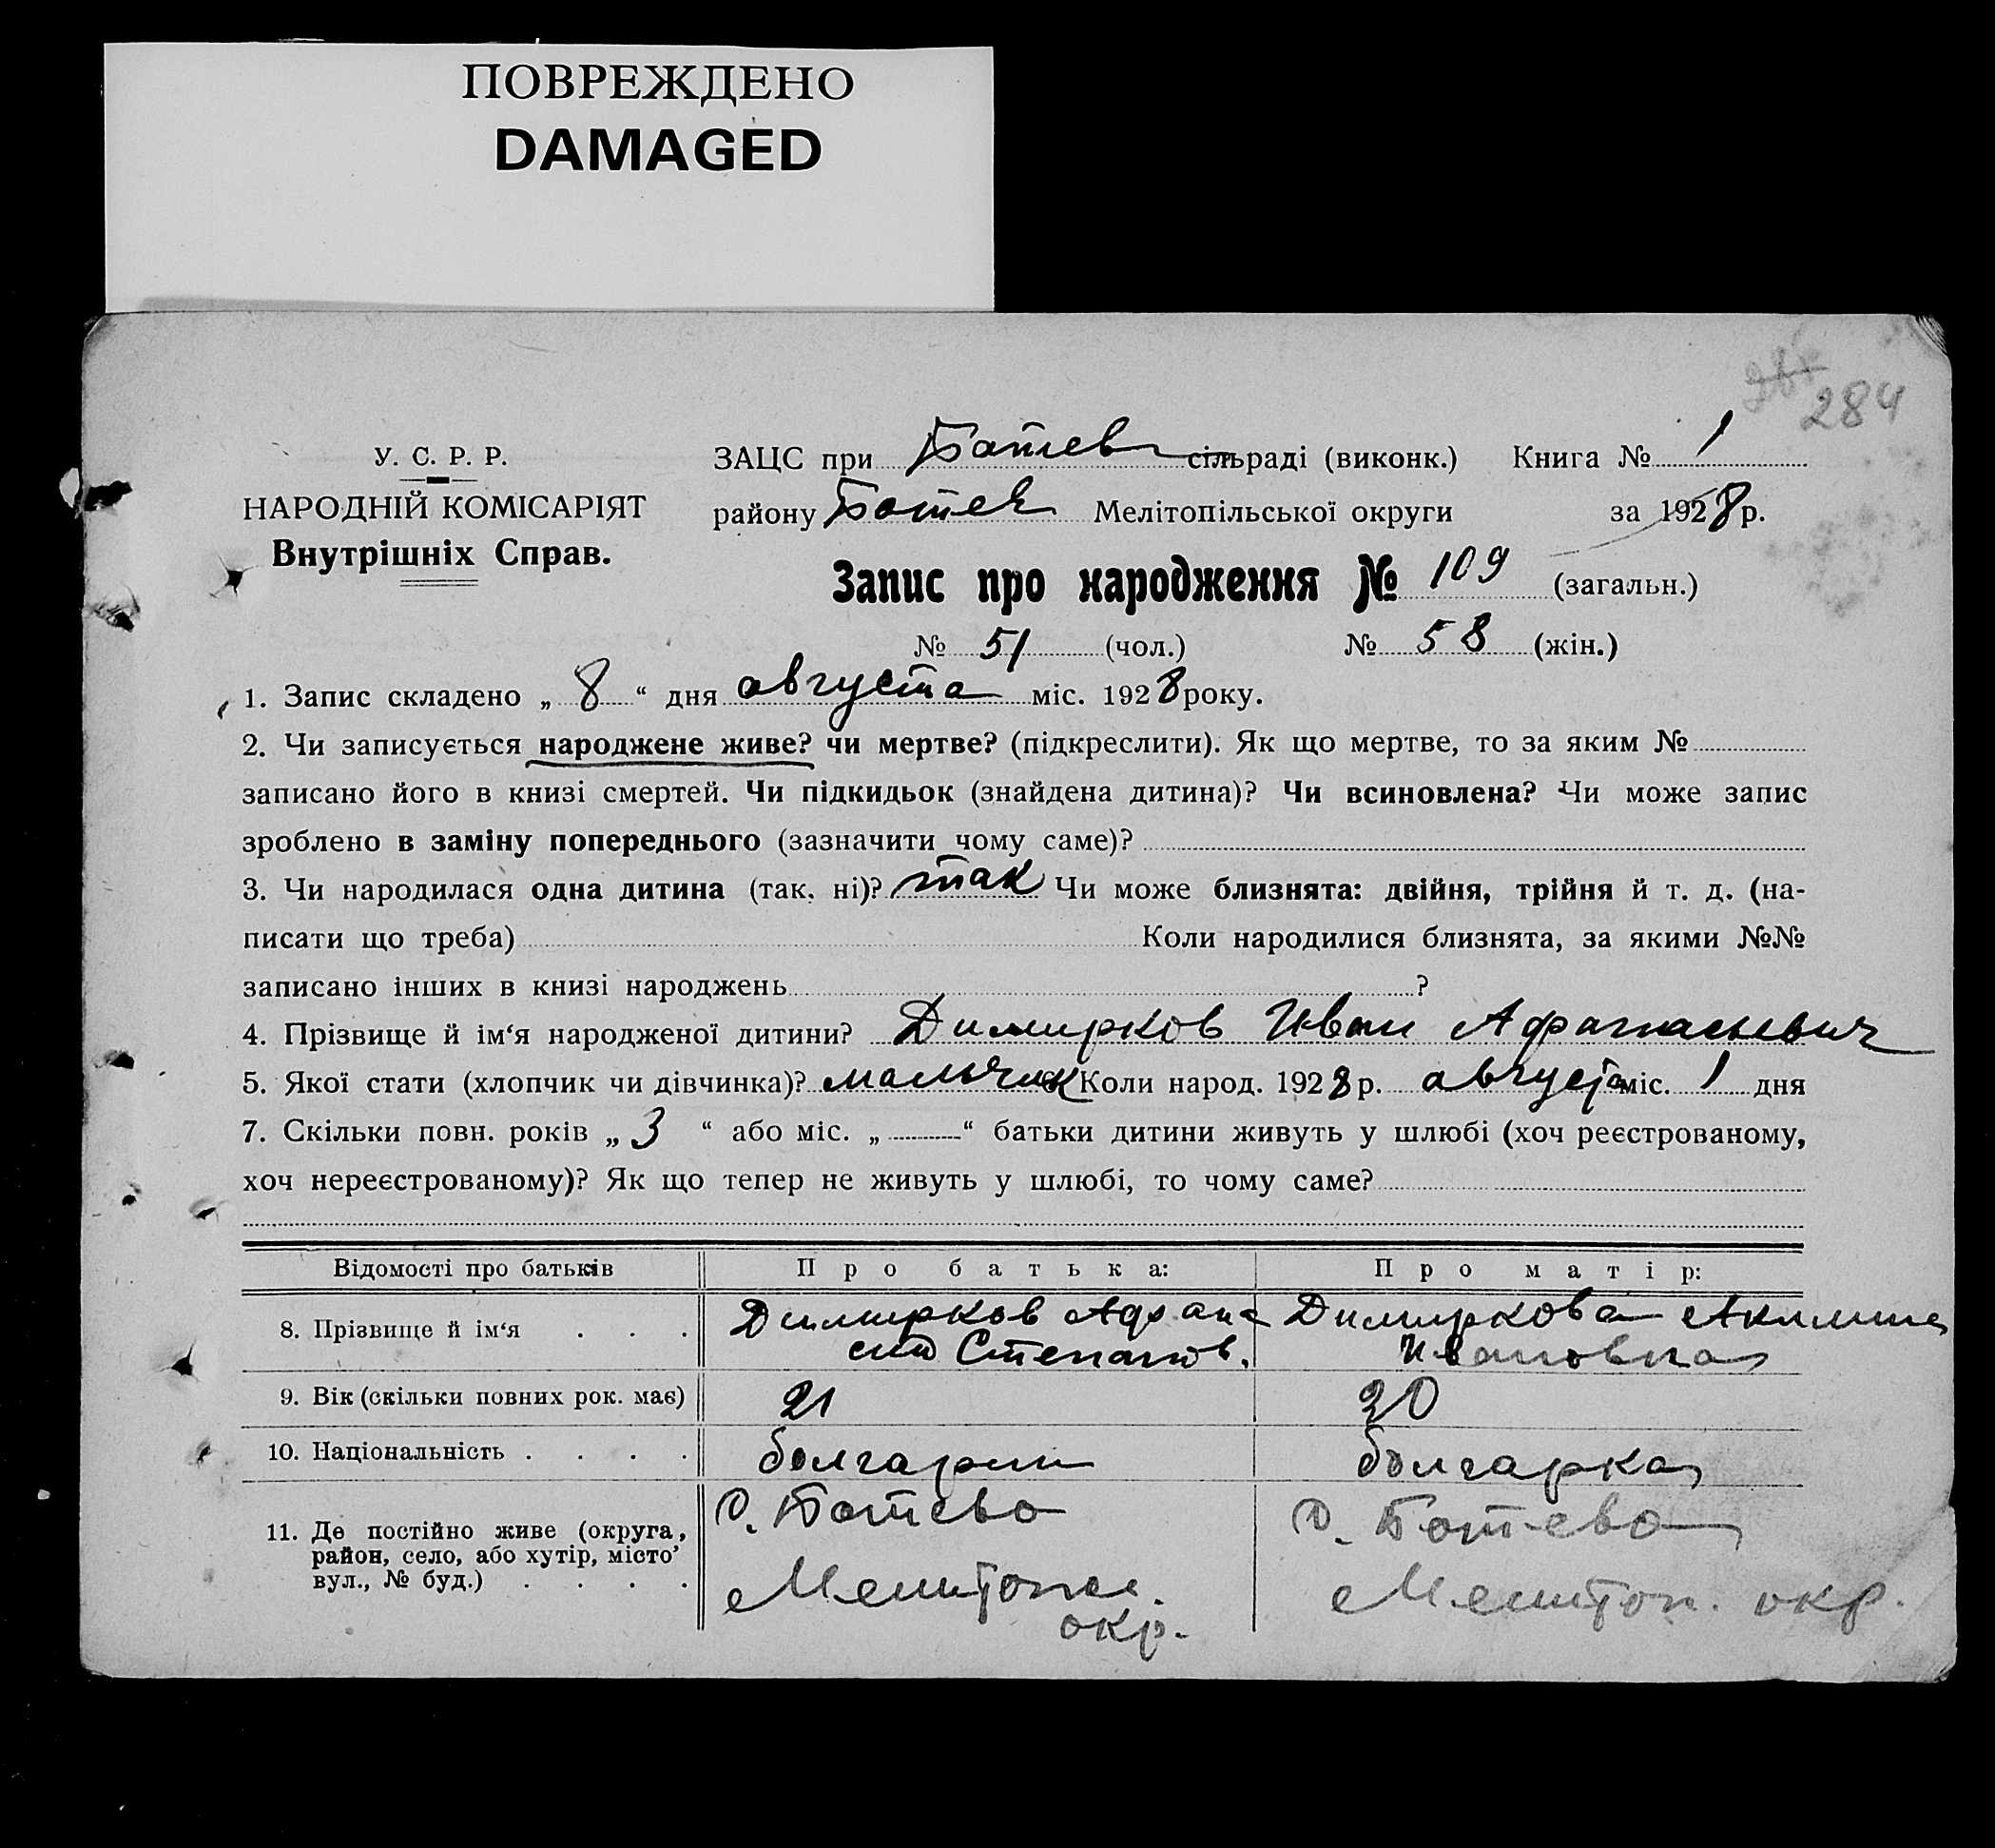 ПОВРЕЖДЕНО
DAMAGED
284
У. С. Р. Р.
НАРОДНІЙ КОМІСАРІЯТ
Внутрішніх Справ.
ЗАЦС при Ботев сільраді (виконк.) Книга № 1
району Ботев Мелітопільської округи за 1928 р.
Запис про народження № 109 (загальн.)
№ 51 (чол.) № 58 (жін.)
1. Запис складено „ 8 “ дня августа міс. 1928 року.
2. Чи записується народжене живе? чи мертве? (підкреслити). Як що мертве, то за яким №
записано його в книзі смертей. Чи підкидьок (знайдена дитина)? Чи всиновлена? Чи може запис
зроблено в заміну попереднього (зазначити чому саме)?
3. Чи народилася одна дитина (так, ні)? так Чи може близнята: двійня, трійня й т. д. (на-
писати що треба) Коли народилися близнята, за якими №№
записано інших в книзі народжень ?
4. Прізвище й ім‘я народженої дитини? Димирков Иван Афанасьевич
5. Якої стати (хлопчик чи дівчинка)? мальчик Коли народ. 1928 р. августа міс. 1 дня
7. Скільки повн. років „ 3 “ або міс. „ “ батьки дитини живуть у шлюбі (хоч реєстрованому,
хоч нереєстрованому)? Як що тепер не живуть у шлюбі, то чому саме?
Відомості про батьків Про батька: Про матір:
8. Прізвище й ім‘я . . . Димирков Афана Димиркова Акилина
сий Степанов. Ивановна
9. Вік (скільки повних рок. має) 21 20
10. Національність . . . . болгарин болгарка
11. Де постійно живе (округа, район, село, або хутір, місто, вул., № буд.) . . . . с. Ботево с. Ботево
Мелитопол. Мелитоп. окр.
окр.